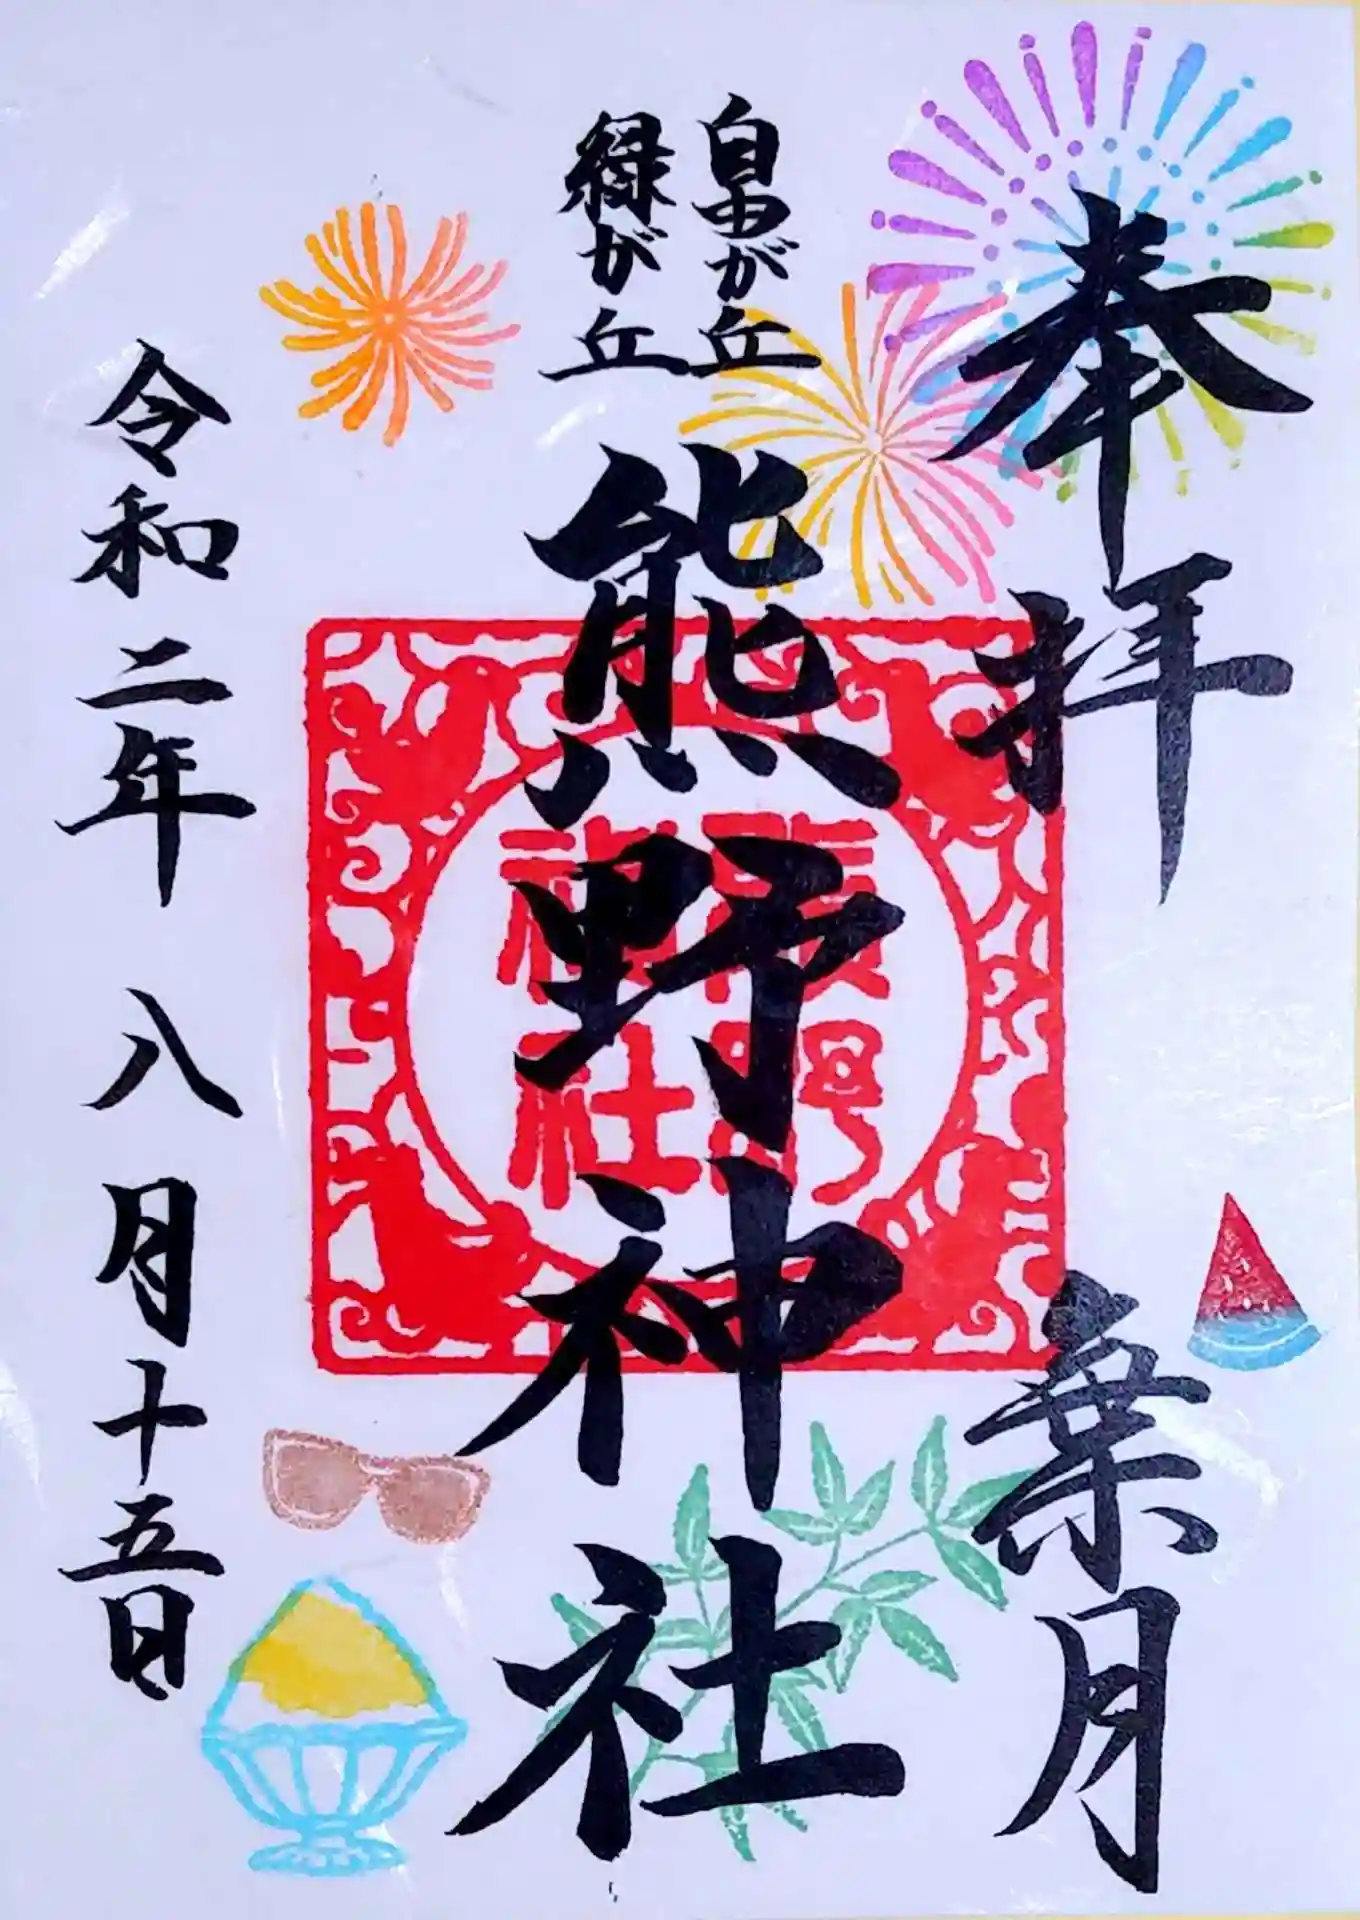 奉拝 葉月
自由が丘
緑が丘
熊野神社
令和二年八月十五日